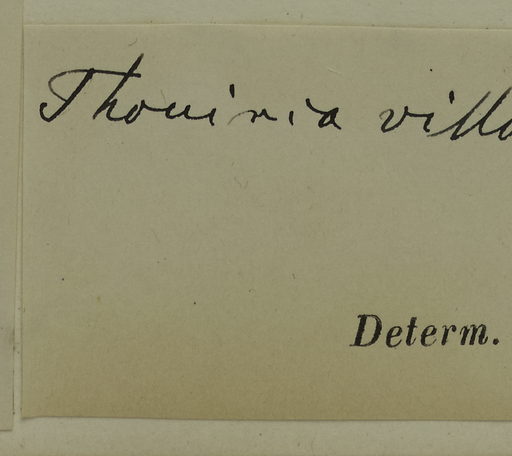 Thouinia villo
Determ.